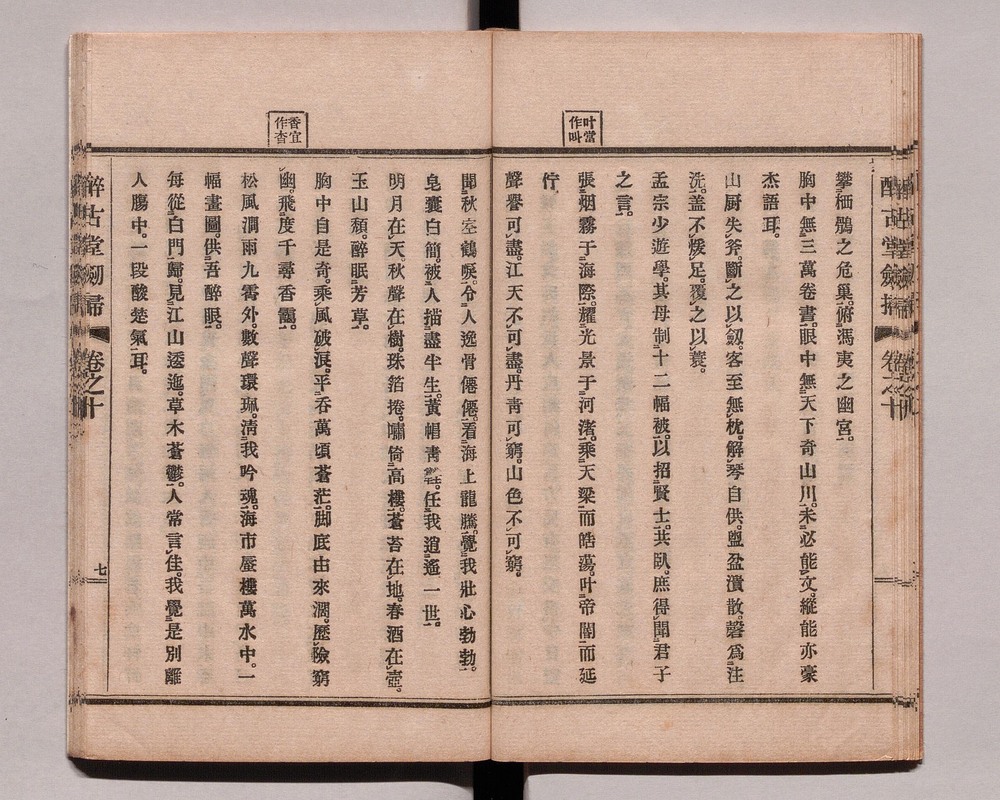 醉古堂劍掃 卷之十
叶當
作叫
攀栖鶻之危巢。俯馮夷之幽宮。
胸中無三萬卷書。眼中無天下奇山川。未必能文。縱能亦豪
杰語耳。
山厨失斧。斷之以劔。客至無枕。解琴自供。盥盆潰散。磬爲注
洗。盖不煖足。覆之以蓑。
孟宗少遊學。其母制十二幅被。以招賢士。共臥。庶得聞君子
之言。
張烟霧于海際。耀光景于河渚。乘天梁而皓蕩。叶帝閽而延
佇。
聲譽可盡。江天不可盡。丹靑可窮。山色不可窮。
香宜
作杳
聞秋空鶴唳。令人逸骨僊僊。看海上龍騰。覺我壯心勃勃。
皂囊白簡。被人描盡半生。黃帽靑鞋。任我逍遙一世。
明月在天。秋聲在樹。珠箔捲。嘯倚高樓。蒼苔在地。春酒在壺。
玉山頹。醉眠芳草。
胸中自是奇。乘風破浪。平吞萬頃蒼茫。脚底由來濶。歷險窮
幽。飛度千尋香靄。
松風澗雨九霄外。數聲環珮。淸我吟魂。海市蜃樓萬水中。一
幅畫圖。供吾醉眼。
每從白門歸。見江山逶迤。草木蒼鬱。人常言佳。我覺是別離
人膓中。一段酸楚氣耳。
醉古堂劍掃 卷之十
七